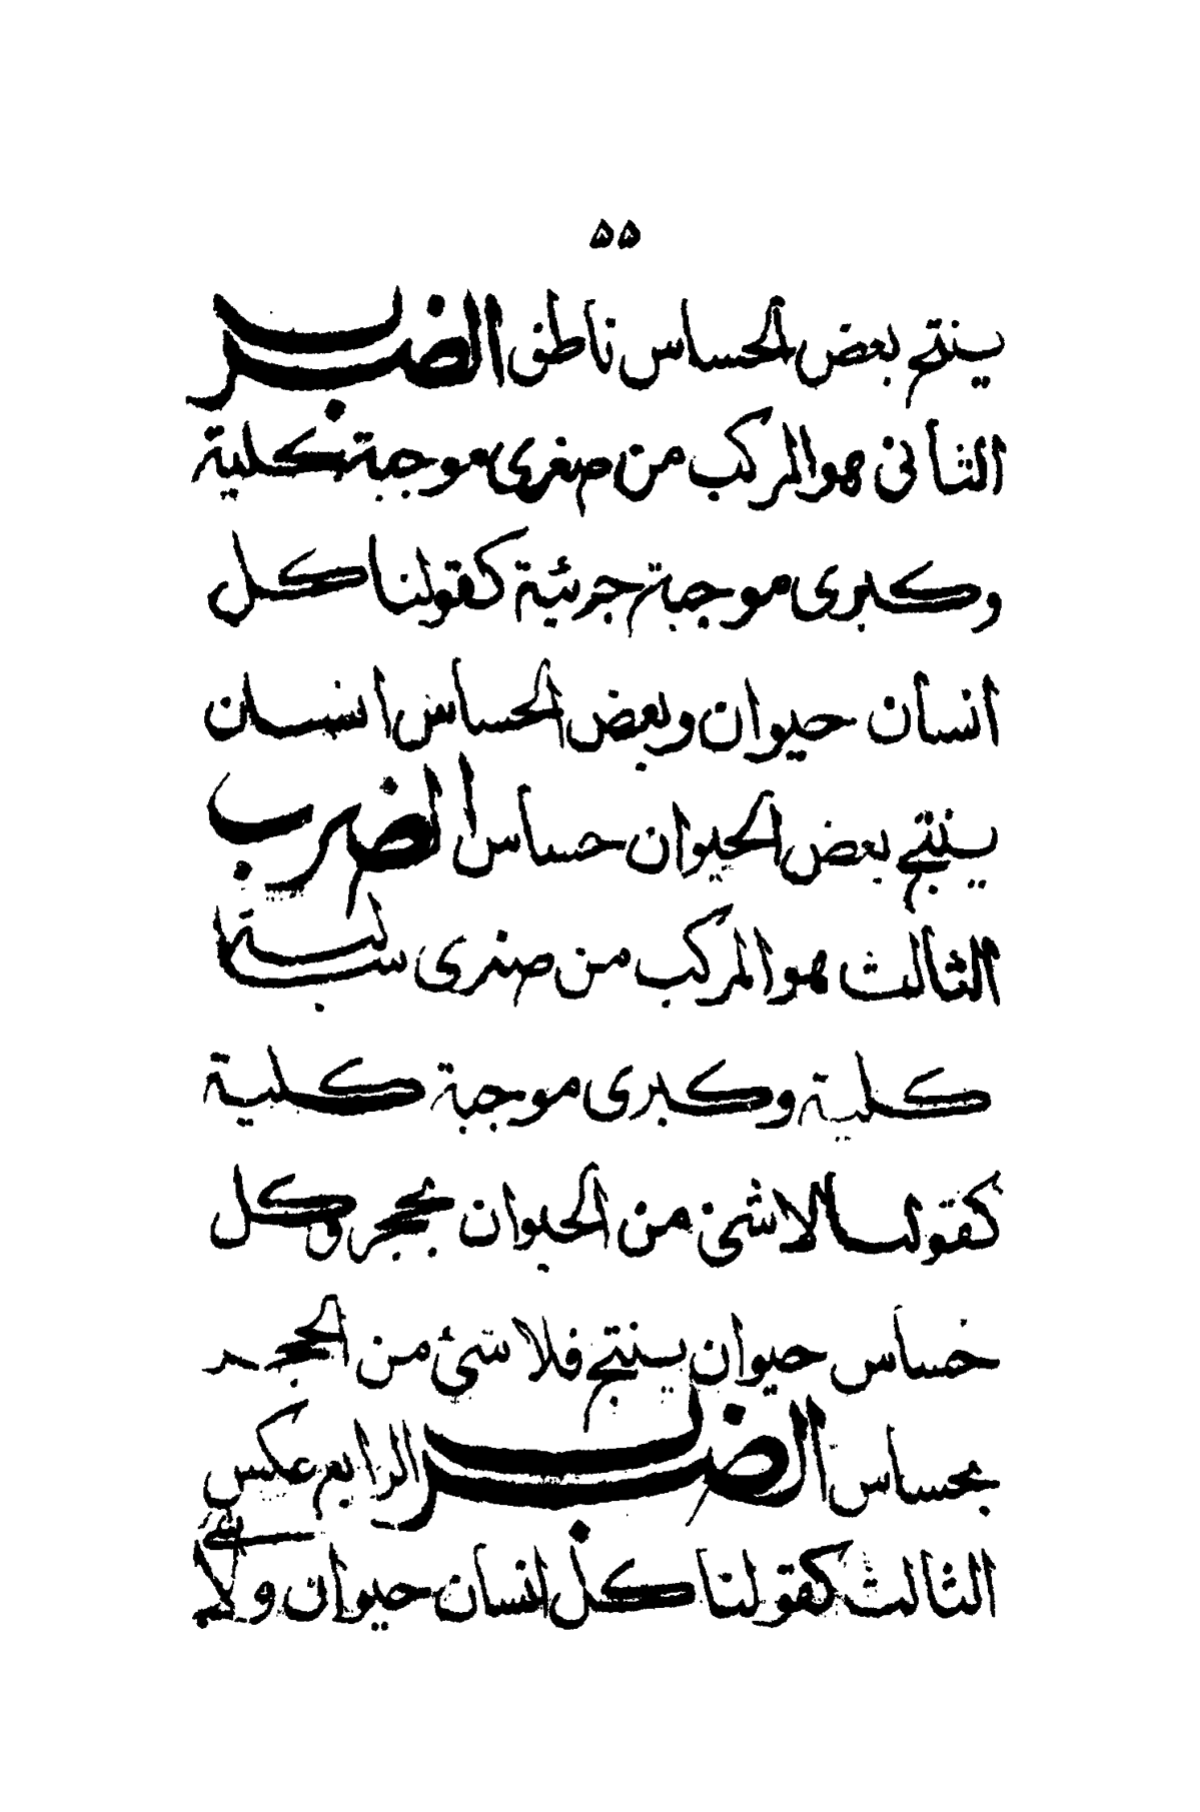 ٥٥
ينتج بعض الحساس ناطق الضرب
الثانى هو المركب من صغرى موجبة كلية
وكبرى موجبة جزئية كقولنا كل
انسان حيوان وبعض الحساس انسان
ينتج بعض الحيوان حساس الضرب
الثالث هو المركب من صغرى سالبة
كلية وكبرى موجبة كلية
كقولنا لا شئ من الحيوان بحجر وكل
حساس حيوان ينتج فلا شئ من الحجر
بحساس الضرب الرابع عكس
الثالث كقولنا كل انسان حيوان ولا شئ